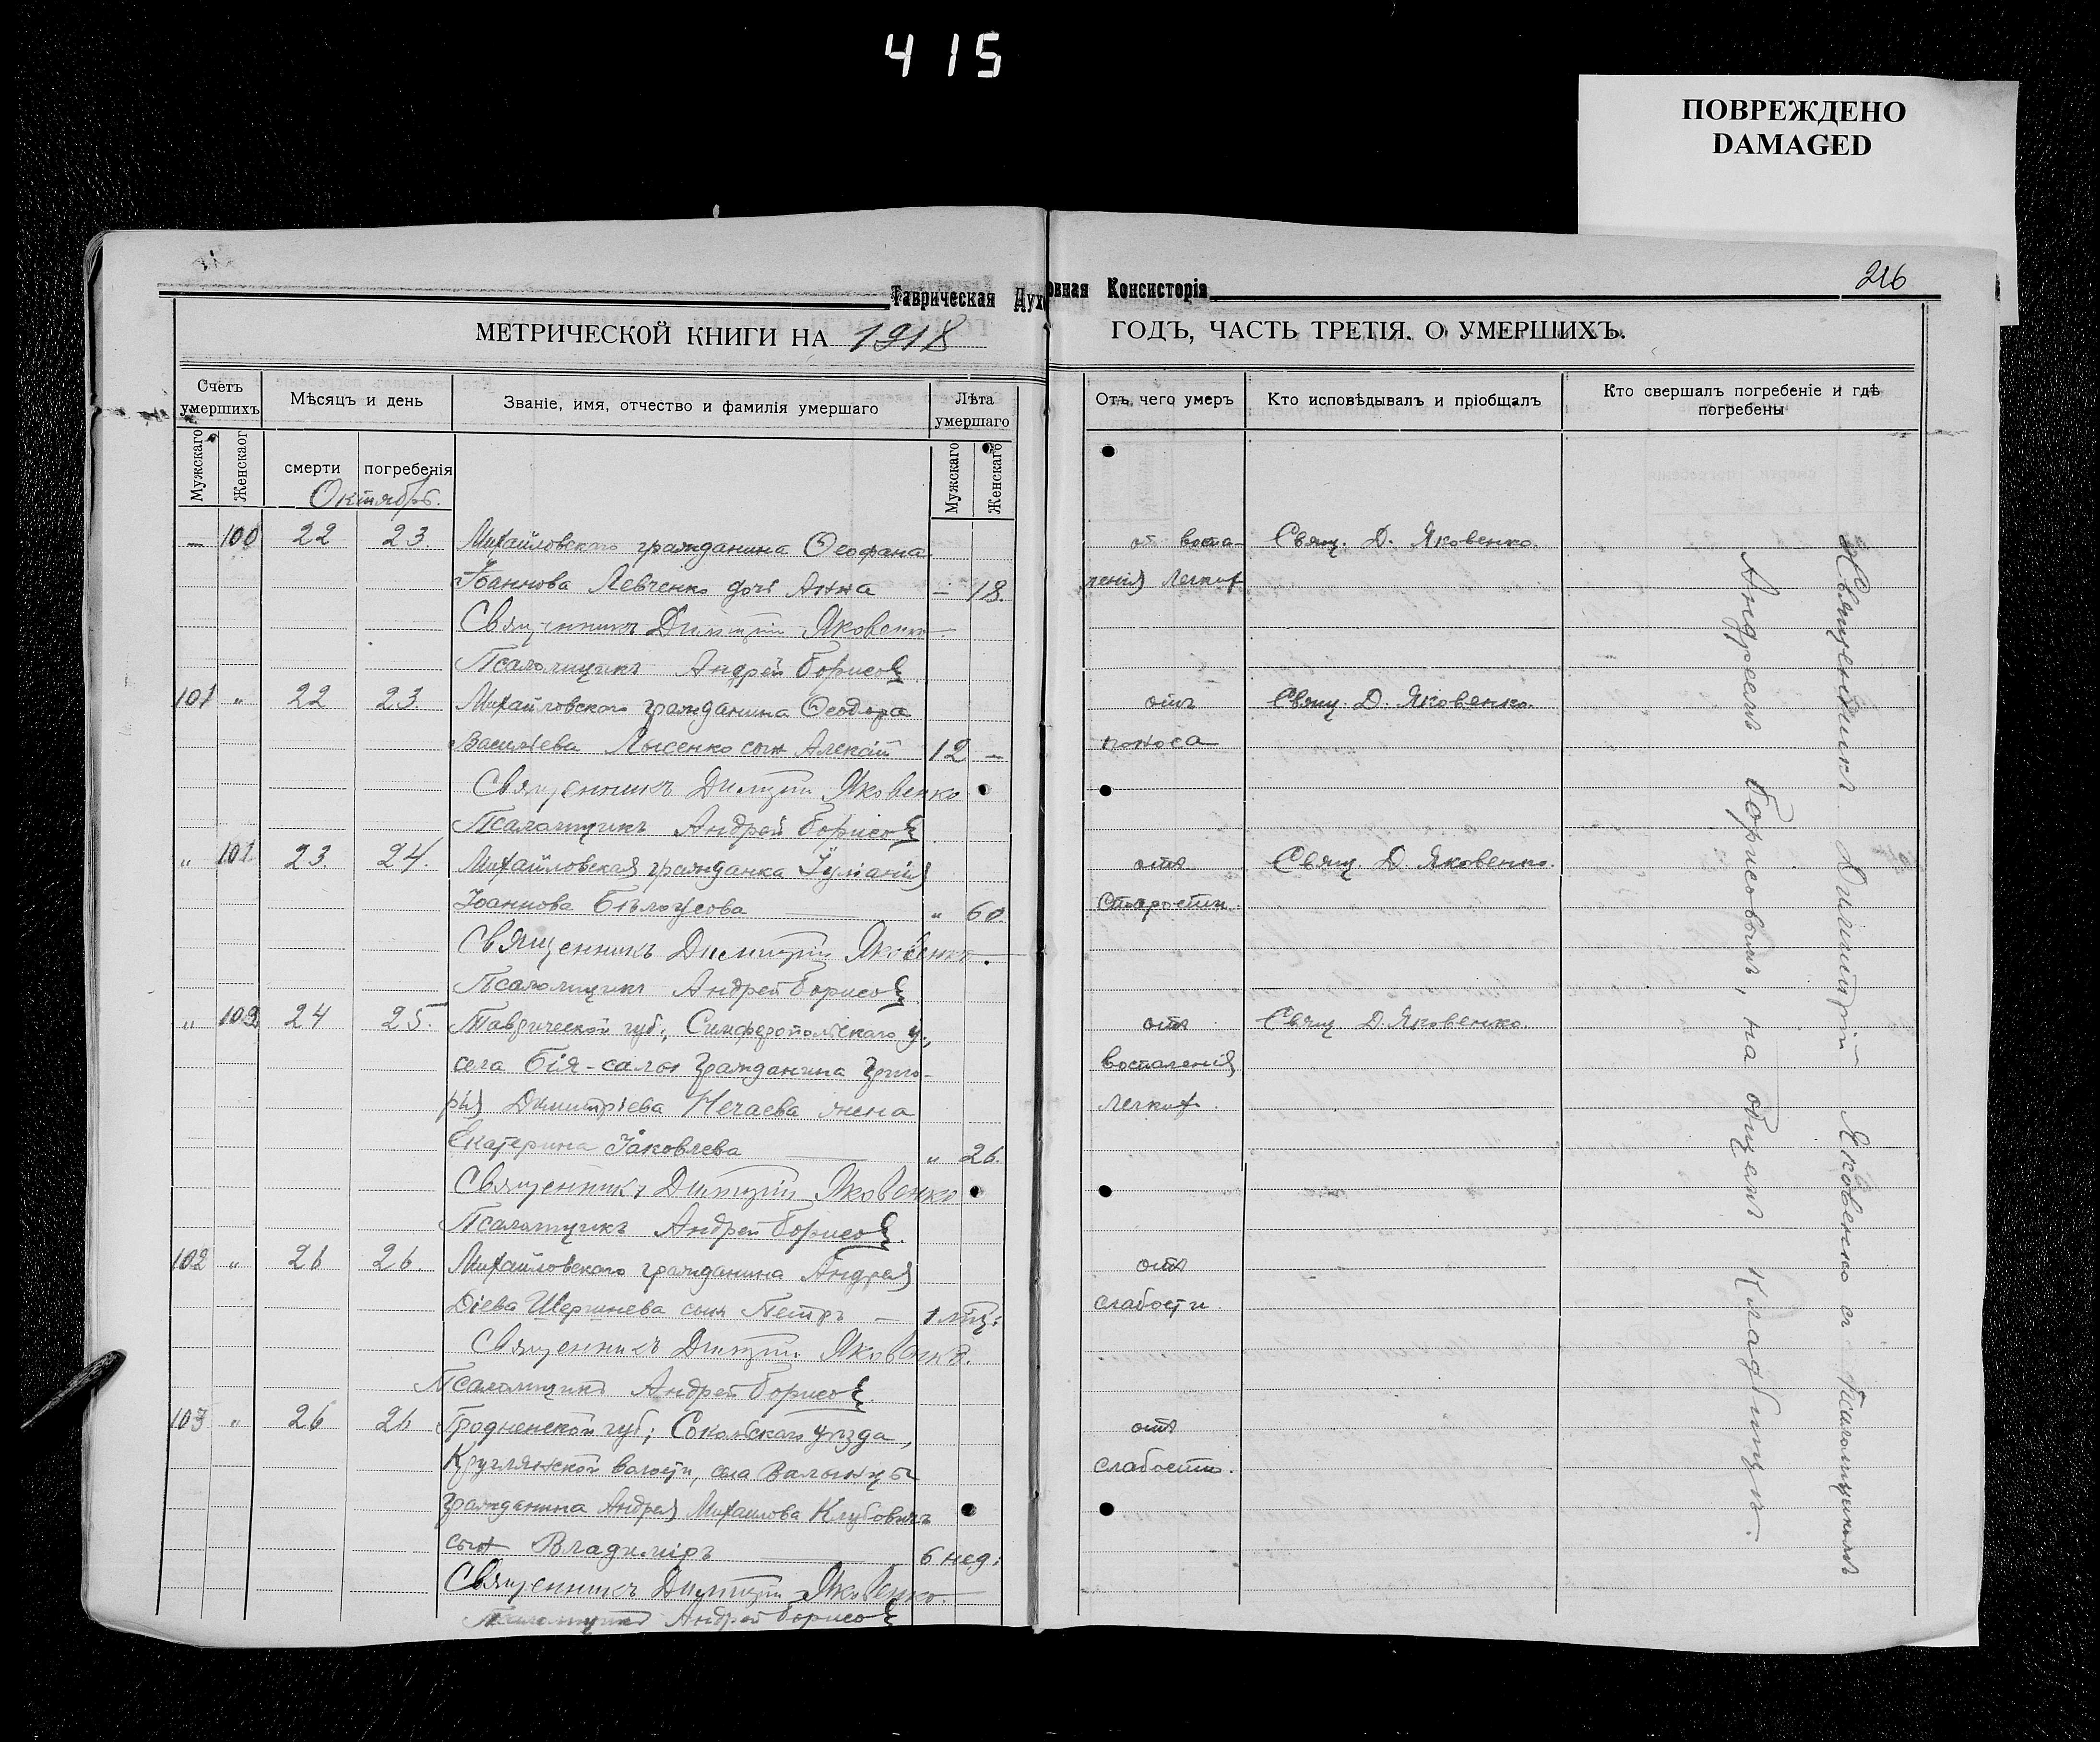 415
ПОВРЕЖДЕНО
DAMAGED
216
Таврическая Духовная Консисторія
МЕТРИЧЕСКОЙ КНИГИ НА 1918 ГОДЪ, ЧАСТЬ ТРЕТІЯ. О УМЕРШИХЪ.
Счетъ умершихъ
Мѣсяцъ и день
Званіе, имя, отчество и фамилія умершаго
Лѣта умершаго
Отъ чего умеръ
Кто исповѣдывалъ и пріобщалъ
Кто свершалъ погребеніе и гдѣ погребены
Мужскаго
Женског
смерти
погребенія
Мужскаго
Женскаго
Октябрь.
— 100 22 23. Михайловскаго гражданина Ѳеофана от воспа- Свящ. Д. Яковенко.
Іоаннова Левченко дочь Анна — 18. ленія легких
Священникъ Димитрій Яковенко.
Псаломщикъ Андрей Борисов
101 „ 22 23. Михайловскаго гражданина Ѳеодора отъ Свящ. Д. Яковенко.
Васильева Лысенко сын Алексій 12 — поноса
Священникъ Димитрій Яковенко
Псаломщикъ Андрей Борисов
„ 101 23. 24. Михайловская гражданка Іуліанія отъ Свящ. Д. Яковенко.
Іоаннова Бѣлоусова „ 60. старости.
Священникъ Димитрій Яковенко.
Псаломщикъ Андрей Борисов
„ 102 24 25. Таврической губ., Симферопольскаго у., отъ Свящ. Д. Яковенко.
села Бія-сала гражданина Григо- воспаленія
рія Димитріева Нечаева жена легких.
Екатерина Іаковлева „ 26.
Священникъ Димитрій Яковенко
Псаломщикъ Андрей Борисов
102 „ 26 26. Михайловскаго гражданина Андрея отъ
Діева сын Петръ — 1 мѣц. слабости.
Священникъ Димитрій Яковенко.
Псаломщикъ Андрей Борисов
103 „ 26 26 Гродненской губ., Сокольскаго уѣзда, отъ
волости, села слабости.
гражданина Андрея Михаилова Клубовичъ
сын Владиміръ 6 нед.
Священникъ Димитрій Яковенко.
Псаломщикъ Андрей Борисов
Священникъ Димитрій Яковенко съ Псаломщикомъ
Андреемъ Борисовымъ, на общемъ кладбищѣ.